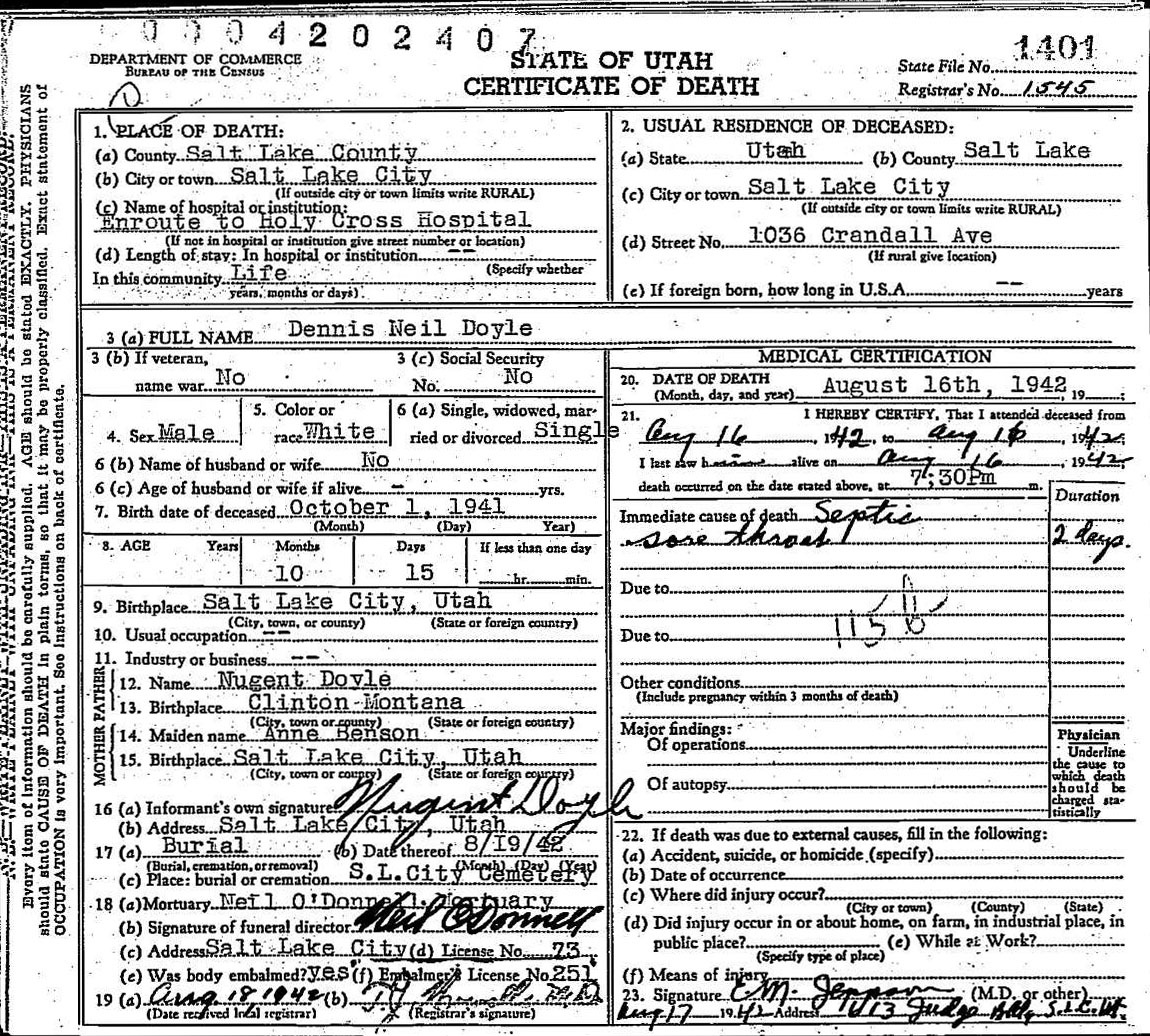 0004202407
1401
DEPARTMENT OF COMMERCE
BUREAU OF THE CENSUS
STATE OF UTAH
CERTIFICATE OF DEATH
State File No.
Registrar's No. 1545
Every item of information should be carefully supplied. AGE should be stated EXACTLY. PHYSICIANS
should state CAUSE OF DEATH in plain terms, so that it may be properly classified. Exact statement of
OCCUPATION is very important. See instructions on back of certificate.
1. PLACE OF DEATH:
(a) County Salt Lake County
(b) City or town Salt Lake City
(If outside city or town limits write RURAL)
(c) Name of hospital or institution:
Enroute to Holy Cross Hospital
(If not in hospital or institution give street number or location)
(d) Length of stay: In hospital or institution --
(Specify whether
In this community Life
years, months or days)
2. USUAL RESIDENCE OF DECEASED:
(a) State Utah (b) County Salt Lake
(c) City or town Salt Lake City
(If outside city or town limits write RURAL)
(d) Street No. 1036 Crandall Ave
(If rural give location)
(e) If foreign born, how long in U.S.A. -- years
3 (a) FULL NAME Dennis Neil Doyle
3 (b) If veteran, name war No
3 (c) Social Security No. No
4. Sex Male
5. Color or race White
6 (a) Single, widowed, married or divorced Single
6 (b) Name of husband or wife No
6 (c) Age of husband or wife if alive - yrs.
7. Birth date of deceased October 1, 1941
(Month) (Day) Year)
8. AGE Years Months Days If less than one day
10 15 hr. min.
9. Birthplace Salt Lake City, Utah
(City, town, or county) (State or foreign country)
10. Usual occupation --
11. Industry or business --
FATHER
12. Name Nugent Doyle
13. Birthplace Clinton Montana
(City, town or county) (State or foreign country)
MOTHER
14. Maiden name Anne Benson
15. Birthplace Salt Lake City, Utah
(City, town or county) (State or foreign country)
16 (a) Informant's own signature Nugent Doyle
(b) Address Salt Lake City, Utah
17 (a) Burial (b) Date thereof 8/19/42
(Burial, cremation, or removal) (Month) (Day) (Year)
(c) Place: burial or cremation S.L.City Cemetery
18 (a) Mortuary Neil O'Donnell Mortuary
(b) Signature of funeral director Neil O'Donnell
(c) Address Salt Lake City (d) License No. 73
(e) Was body embalmed? yes (f) Embalmer's License No. 251
19 (a) Aug 18, 1942 (b)
(Date received local registrar) (Registrar's signature)
MEDICAL CERTIFICATION
20. DATE OF DEATH
(Month, day, and year) August 16th, 1942, 19 ;
21. I HEREBY CERTIFY, That I attended deceased from
Aug 16, 1942, to Aug 16, 1942;
I last saw him alive on Aug 16, 1942;
death occurred on the date stated above, at 7;30Pm m.
Duration
Immediate cause of death Septic
sore throat 2 days.
Due to
115 b
Due to
Other conditions
(Include pregnancy within 3 months of death)
Major findings:
Of operations
Of autopsy
Physician
Underline
the cause to
which death
should be
charged sta-
tistically
22. If death was due to external causes, fill in the following:
(a) Accident, suicide, or homicide (specify)
(b) Date of occurrence
(c) Where did injury occur?
(City or town) (County) (State)
(d) Did injury occur in or about home, on farm, in industrial place, in
public place? (e) While at Work?
(Specify type of place)
(f) Means of injury
23. Signature E.M. Jeppson (M.D. or other)
Aug 17 1942 Address 1013 Judge Bldg S.L.C. Ut.